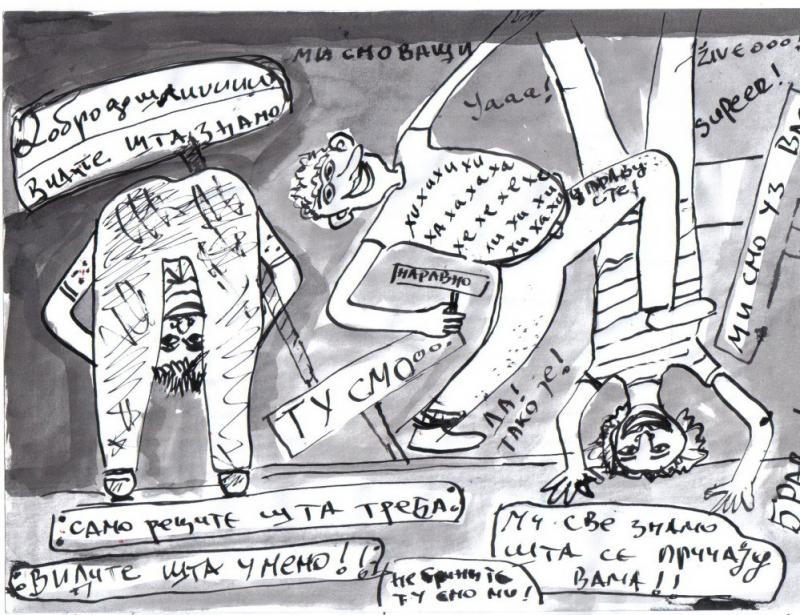 Добродошлииииии
ВИДИТЕ ШТА ЗНАМО
МИ СМО ВАШИ
Уааа!
ŽIVEOOO!
SUPEER!
ХИ ХИ ХИ ХИ
ХА ХА ХА ХА
ХЕ ХЕ ХЕ ХЕ
ХИ ХИ ХИ
ХИ ХА ХА
У ПРАВУ
СТЕ!
НАРАВНО
МИ СМО УЗ ВА
ТУ СМО...
ДА!
ТАКО ЈЕ!
БРА
САМО РЕЦИТЕ ШТА ТРЕБА
ВИДИТЕ ШТА УМЕМО!!
НЕ БРИНИТЕ
ТУ СМО МИ!
МИ СВЕ ЗНАМО
ШТА СЕ
ВАМА!!